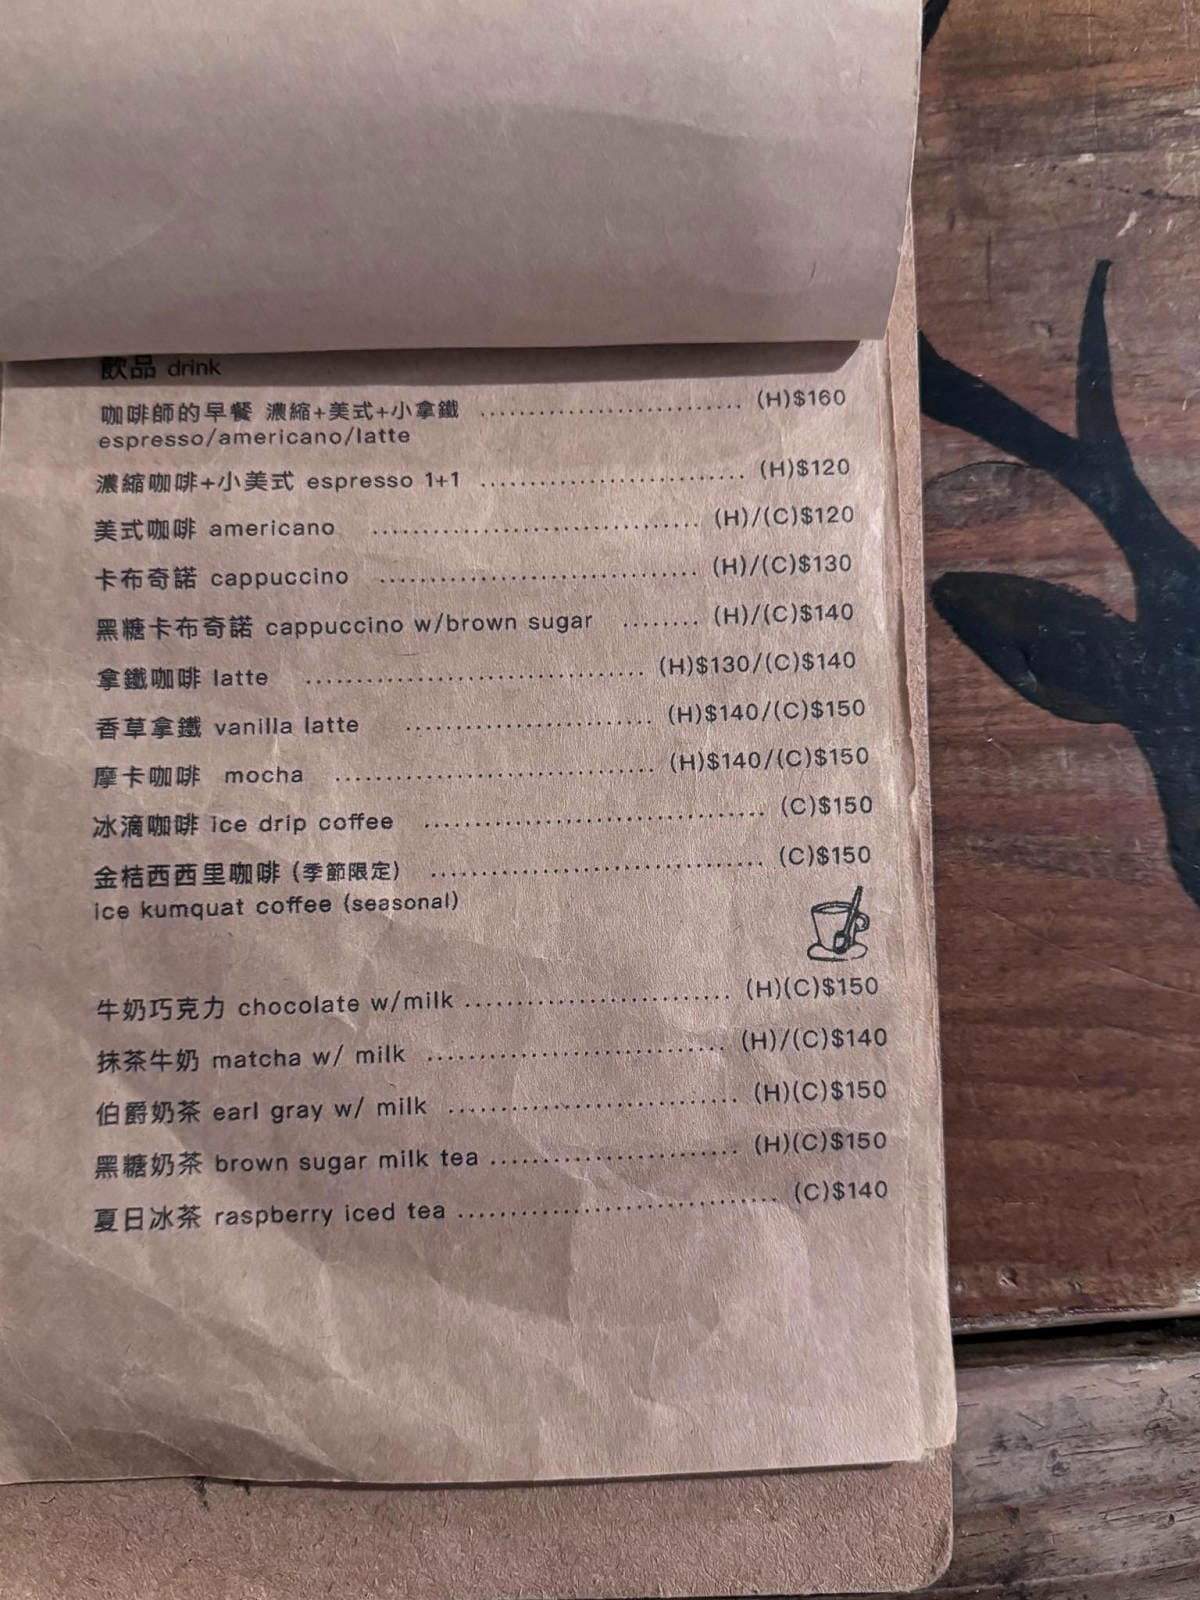 飲品 drink
咖啡師的早餐 濃縮+美式+小拿鐵 .......................... (H)$160
espresso/americano/latte
濃縮咖啡+小美式 espresso 1+1 .......................... (H)$120
美式咖啡 americano ................................ (H)/(C)$120
卡布奇諾 cappuccino ............................... (H)/(C)$130
黑糖卡布奇諾 cappuccino w/brown sugar ........ (H)/(C)$140
拿鐵咖啡 latte ................................. (H)$130/(C)$140
香草拿鐵 vanilla latte ........................ (H)$140/(C)$150
摩卡咖啡 mocha ............................... (H)$140/(C)$150
冰滴咖啡 ice drip coffee ................................. (C)$150
金桔西西里咖啡 (季節限定) ................................ (C)$150
ice kumquat coffee (seasonal)
牛奶巧克力 chocolate w/milk .......................... (H)(C)$150
抹茶牛奶 matcha w/ milk ............................. (H)/(C)$140
伯爵奶茶 earl gray w/ milk ............................ (H)(C)$150
黑糖奶茶 brown sugar milk tea ........................ (H)(C)$150
夏日冰茶 raspberry iced tea ............................... (C)$140